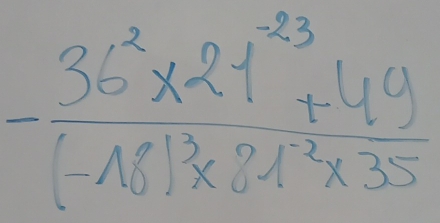 - 36² × 21⁻²³ + 49
(-18)³ × 81⁻² × 35